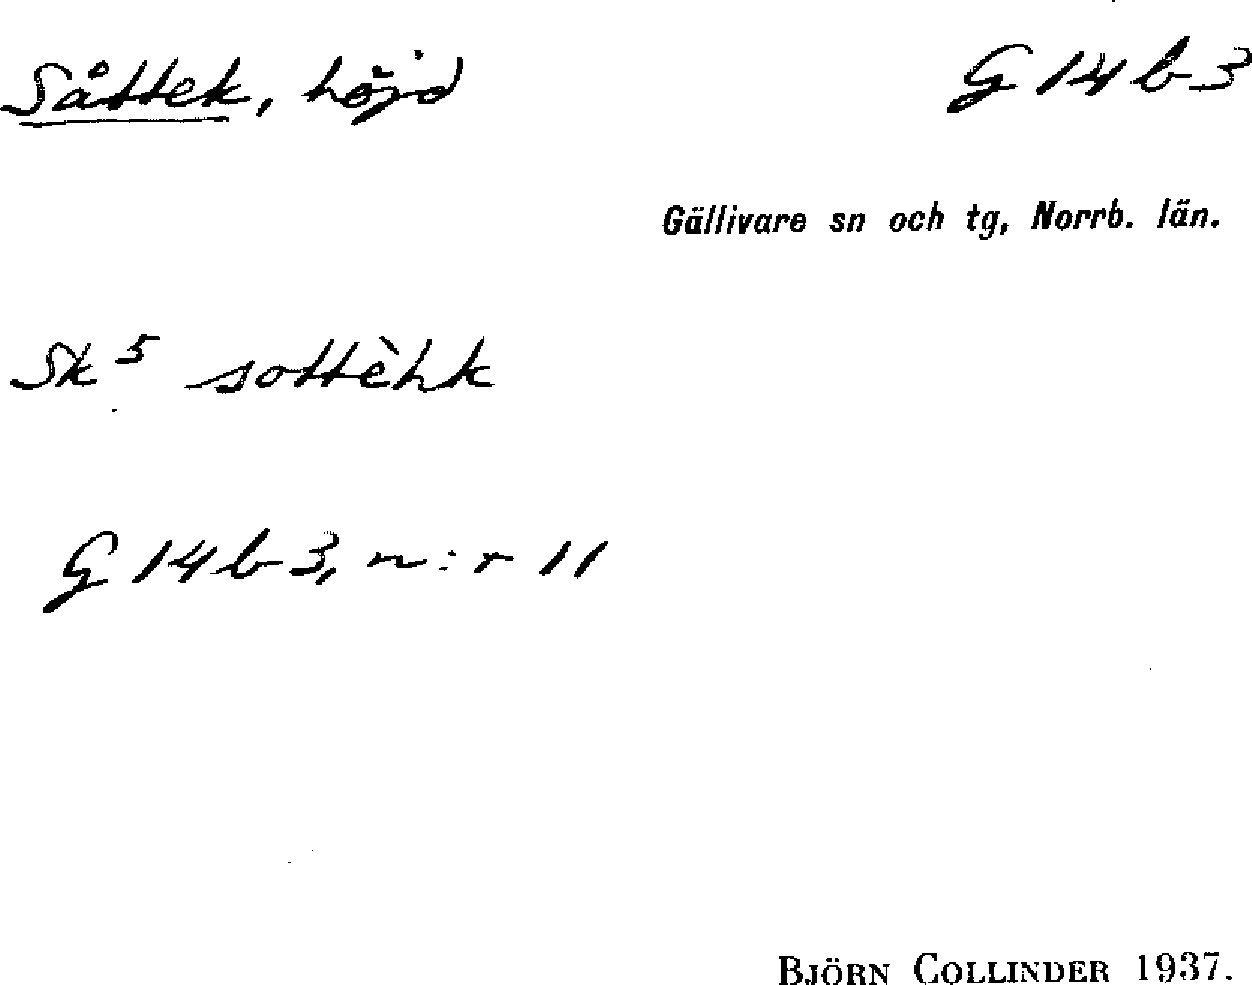 Såttek, höjd
G 14 b 3
Gällivare sn och tg, Norrb. län.
Sk 5 sottèhk
G 14 b 3, n:r 11
BJÖRN COLLINDER 1937.